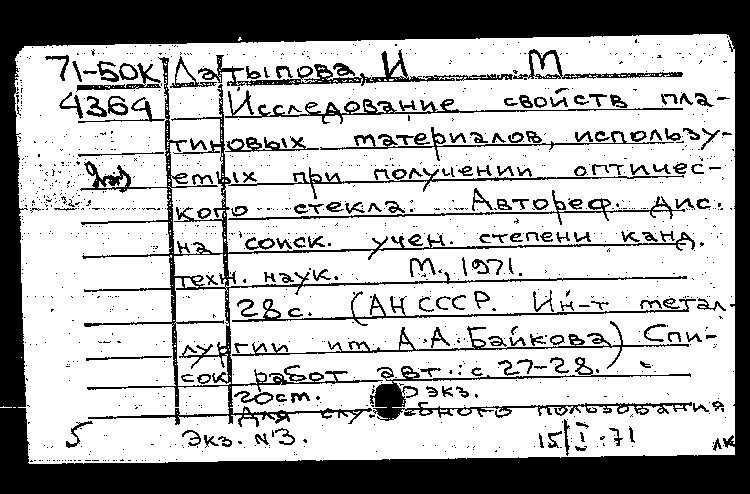 71-БОК Латыпова, И М
4364 Исследование свойств пла-
тиновых материалов, использу-
емых при получении оптичес-
кого стекла. Автореф. Дис.
на соиск. учен. степени канд.
техн. наук. М., 1971.
28 с. (АН СССР. Ин-т метал-
лургии им. А.А.Байкова) Спи-
сок работ авт.: с. 27-28.
гост. экз.
Для пользования
5 Экз. №3. 15/I-71 ЛК